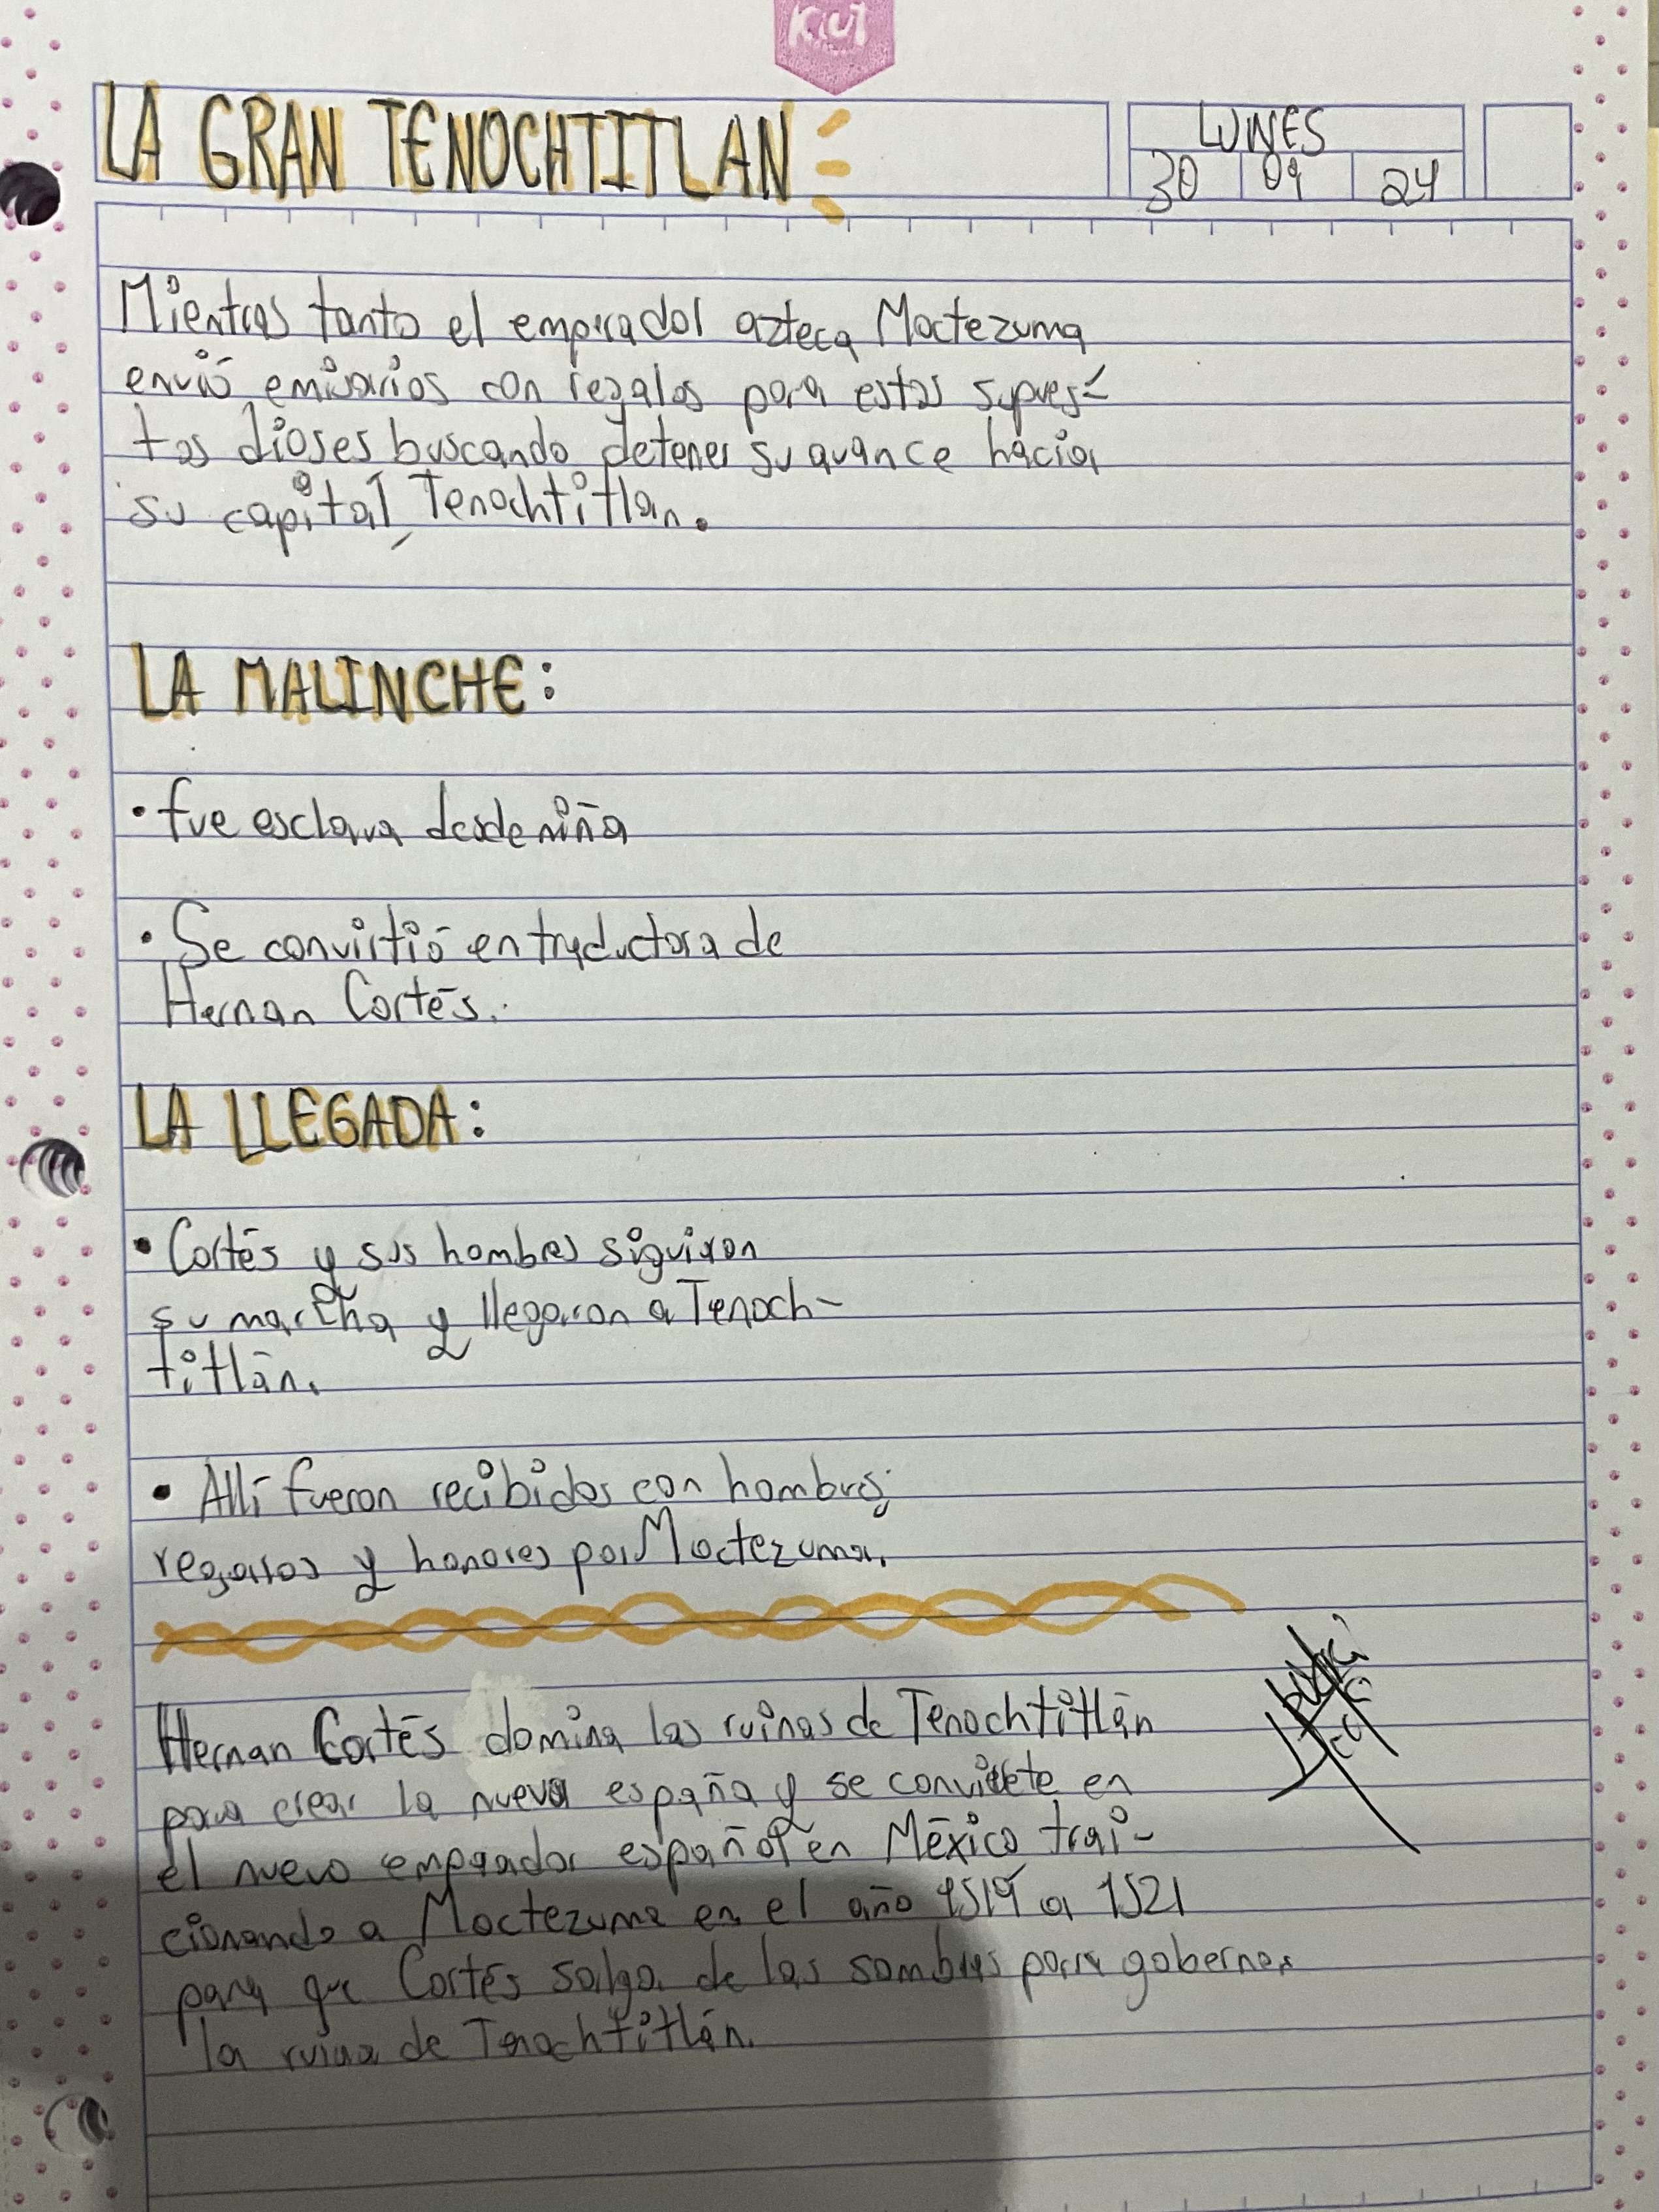 Kiut
LA GRAN TENOCHTITLAN
LUNES
30 09 24
Mientras tanto el emperador azteca Moctezuma
envió emisarios con regalos para estos supues-
tos dioses buscando detener su avance hacia
su capital, Tenochtitlan.
LA MALINCHE:
• fue esclava desde niña
• Se convirtió en traductora de
Hernan Cortés.
LA LLEGADA:
• Cortés y sus hombres siguieron
su marcha y llegaron a Tenoch-
titlán.
• Allí fueron recibidos con hombres,
regalos y honores por Moctezuma.
Hernan Cortés domina las ruinas de Tenochtitlán
para crear la nueva españa y se convierte en
el nuevo emperador español en México trai-
cionando a Moctezuma en el año 1519 a 1521
para que Cortés salga de las sombras para gobernar
la ruina de Tenochtitlán.